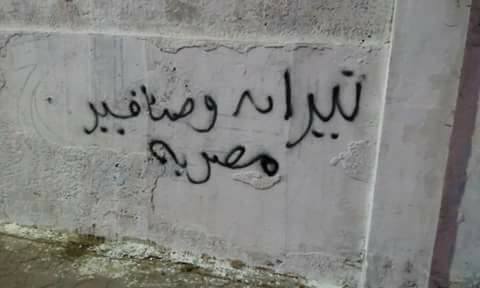 تيران وصنافير
مصرية